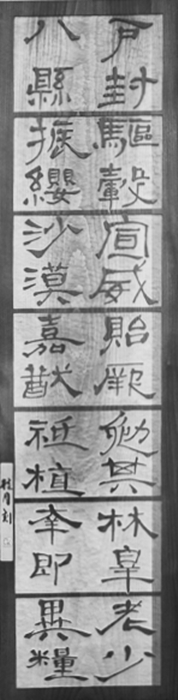 戶封
八縣
驅轂
振纓
宣威
沙漠
貽厥
嘉猷
勉其
祗植
林皐
幸即
老少
異糧